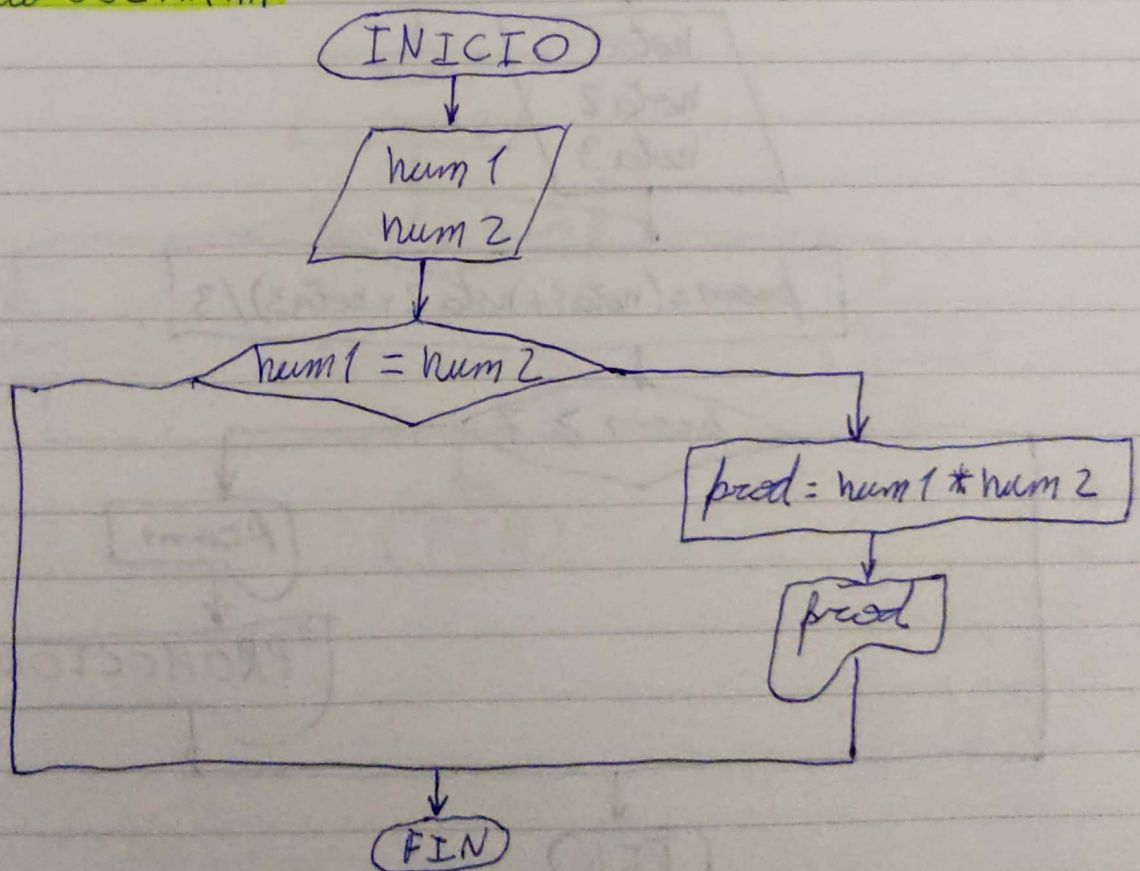 INICIO
num 1
num 2
num 1 = num 2
prod = num 1 * num 2
prod
FIN